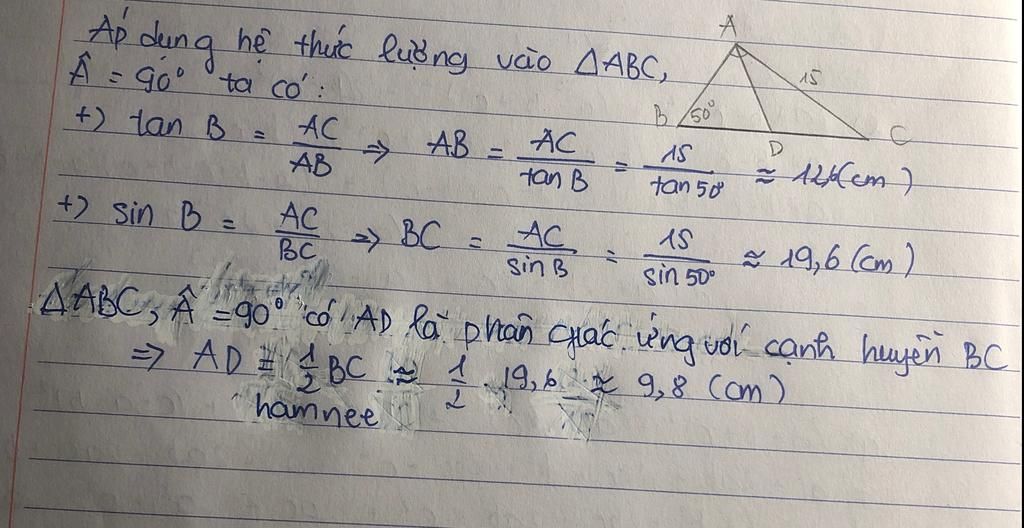 Áp dụng hệ thức lượng vào ΔABC,
Â = 90° ta có:
+) tan B = AC/AB => AB = AC/tan B = 15/tan 50° ≈ 12,6(cm)
+) sin B = AC/BC => BC = AC/sin B = 15/sin 50° ≈ 19,6 (cm)
ΔABC, Â = 90° có AD là phân giác ứng với cạnh huyền BC
=> AD = 1/2 BC ≈ 1/2 . 19,6 ≈ 9,8 (cm)
hamnee
A
15
B 50°
D
C